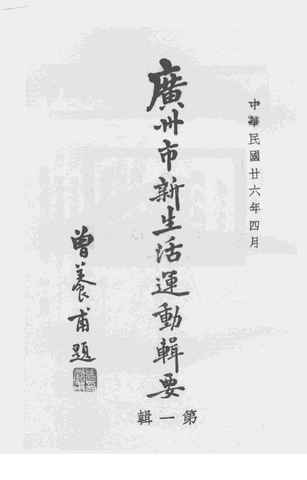 中華民國廿六年四月
廣州市新生活運動輯要
第一輯
曾養甫題